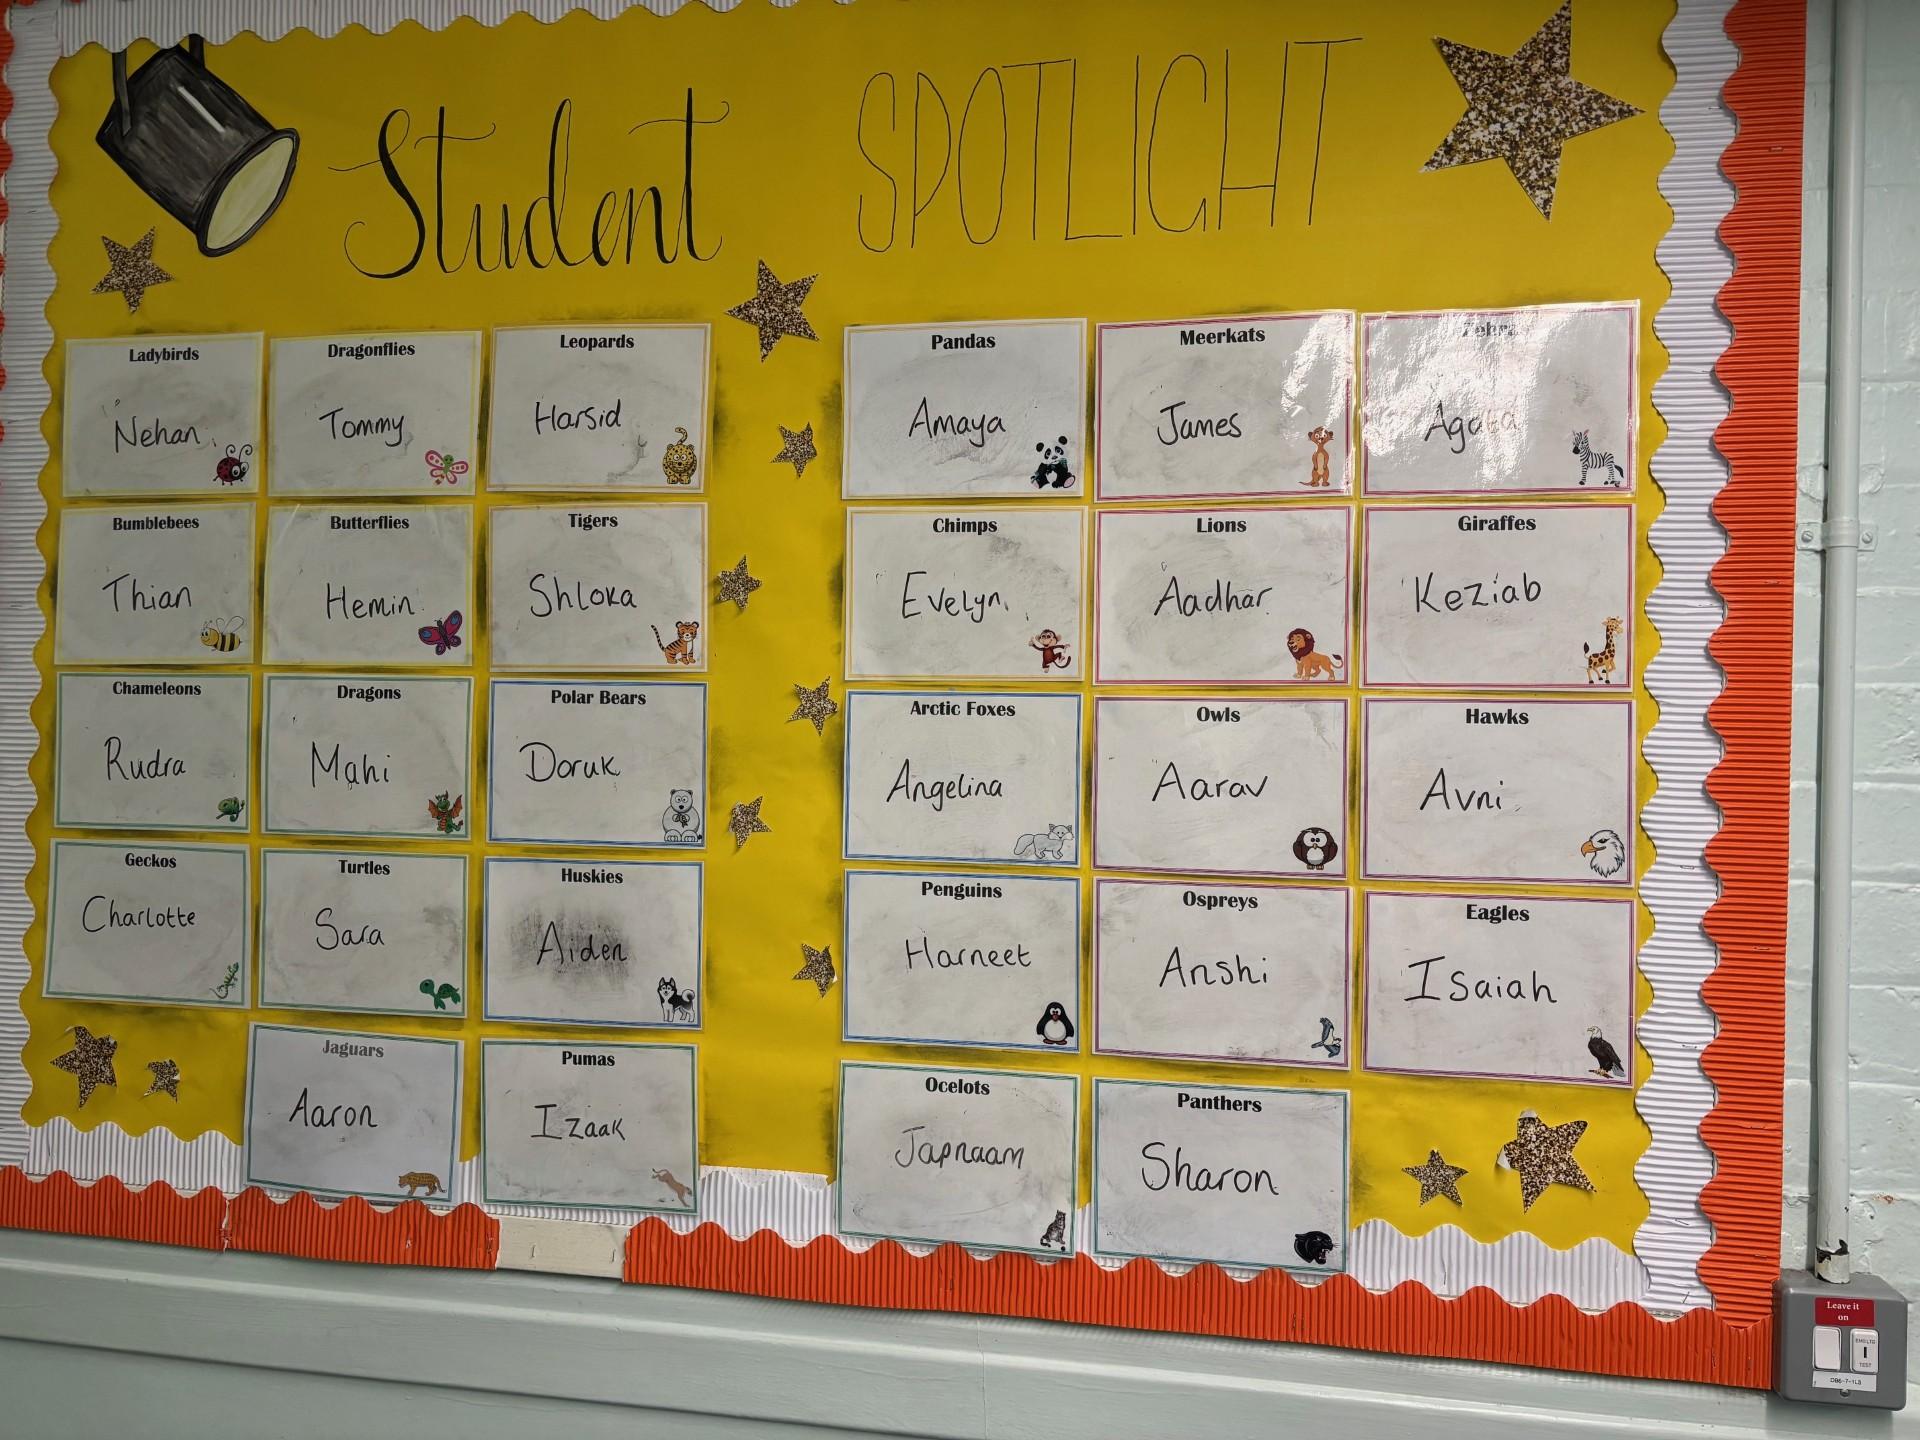 Student SPOTLIGHT
Ladybirds
Nehan
Dragonflies
Tommy
Leopards
Harsid
Pandas
Amaya
Meerkats
James
Zebras
Bumblebees
Thian
Butterflies
Hemin
Tigers
Shloka
Chimps
Evelyn
Lions
Aadhar
Giraffes
Keziab
Chameleons
Rudra
Dragons
Mahi
Polar Bears
Doruk
Arctic Foxes
Angelina
Owls
Aarav
Hawks
Avni
Geckos
Charlotte
Turtles
Sara
Huskies
Aiden
Penguins
Harneet
Ospreys
Anshi
Eagles
Isaiah
Jaguars
Aaron
Pumas
Izaak
Ocelots
Japnaam
Panthers
Sharon
Leave it
on
TEST